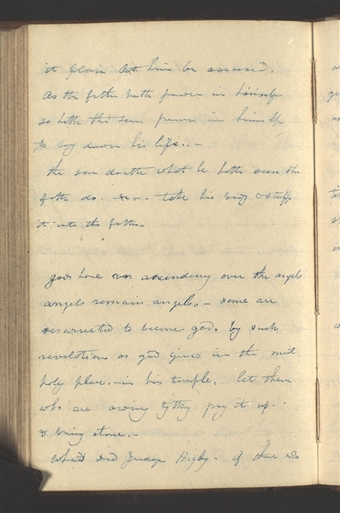 it plain let him be assured.
As the father hath power in himself
so hath the son power in himself
to lay down his life. . —
the son doeth what he hath seen the
father do. &c. — take his body & stuff
it into the father.
gods have an ascendency over the angels
angels remain angels. — some are
resurrected to become god. by such
revelations as god gives in the most
holy place. — in his temple. let them
who are owing tything pay it up.
& bring stone. —
Judge Higby. if there is